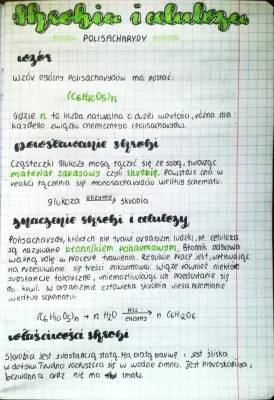 skrobia i celuloza
POLISACHARYDY
wzór
Wzór ogólny polisacharydów ma postać:
(C6H10O5)n
gdzie n to liczba naturalna o dużej wartości, różna dla
każdego związku chemicznego (polisacharydu).
powstawanie skrobi
Cząsteczki glukozy mogą łączyć się ze sobą, tworząc
materiał zapasowy czyli skrobię. Powstaje ona w
reakcji łączenia się monosacharydów według schematu:
glukoza enzymy skrobia
znaczenie skrobi i celulozy
Polisacharydy, których nie trawi organizm ludzki, np. celuloza
są nazywane błonnikiem pokarmowym. Błonnik odgrywa
ważną rolę w procesie trawienia. Reguluje pracę jelit, wpływając
na przesuwanie się treści pokarmowej. Wiąże również niektóre
substancje toksyczne, uniemożliwiając ich przedostanie się
do krwi. W organizmie człowieka skrobia ulega przemianie
według schematu:
(C6H10O5)n + n H2O HCl enzymy n C6H12O6
właściwości skrobi
Skrobia jest substancją stałą. Ma białą barwę i jest śliska
w dotyku. Trudno rozpuszcza się w wodzie zimnej. Jest
bezwonna oraz nie ma smaku.